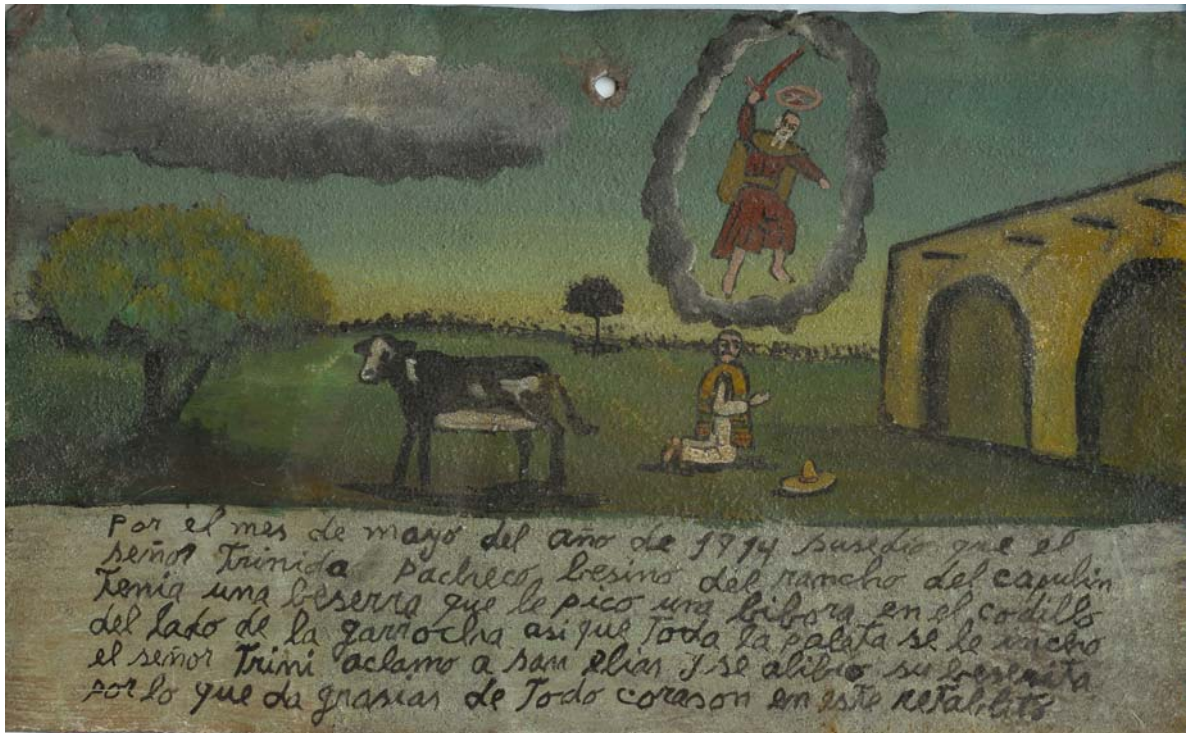 Por el mes de mayo del año de 1914 susedio que el
señor Trinida Pacheco besino del rancho del capulin
Tenia una beserra que le pico una bibora en el codillo
del lado de la garrocha asi que Toda la paleta se le incho
el señor Trini aclamo a san elias y se alibio su beserrita
por lo que da grasias de Todo corason en este retablito